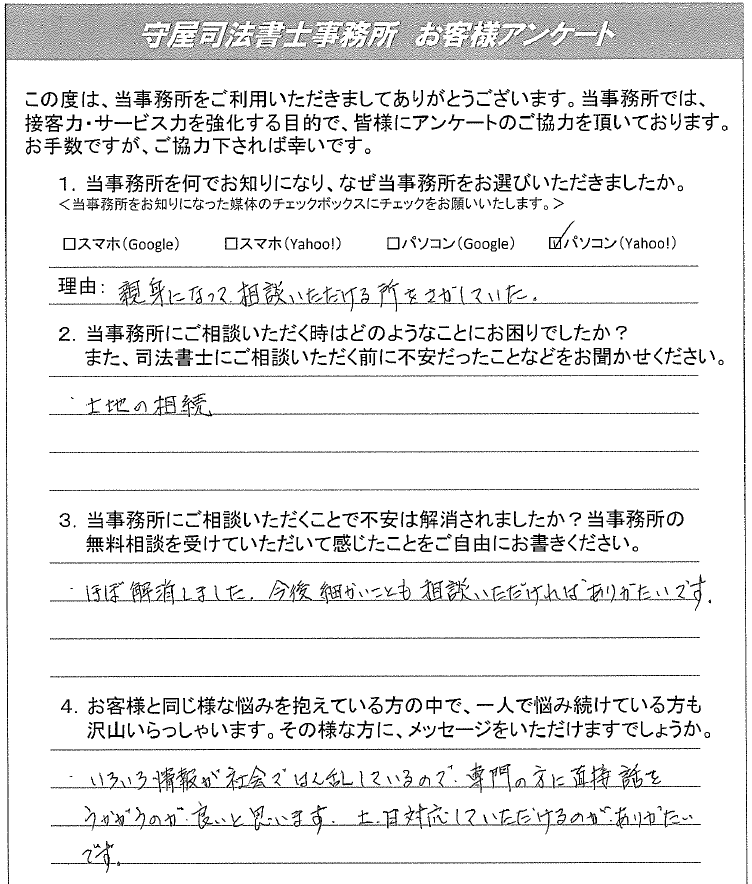 守屋司法書士事務所 お客様アンケート
この度は、当事務所をご利用いただきましてありがとうございます。当事務所では、
接客力・サービス力を強化する目的で、皆様にアンケートのご協力を頂いております。
お手数ですが、ご協力下されば幸いです。
1．当事務所を何でお知りになり、なぜ当事務所をお選びいただきましたか。
＜当事務所をお知りになった媒体のチェックボックスにチェックをお願いいたします。＞
□スマホ（Google） □スマホ（Yahoo!） □パソコン（Google） ☑パソコン（Yahoo!）
理由： 親身になって、相談いただける所をさがしていた。
2．当事務所にご相談いただく時はどのようなことにお困りでしたか？
また、司法書士にご相談いただく前に不安だったことなどをお聞かせください。
・土地の相続
3．当事務所にご相談いただくことで不安は解消されましたか？当事務所の
無料相談を受けていただいて感じたことをご自由にお書きください。
・ほぼ解消しました。今後細かいことも相談いただければありがたいです。
4．お客様と同じ様な悩みを抱えている方の中で、一人で悩み続けている方も
沢山いらっしゃいます。その様な方に、メッセージをいただけますでしょうか。
・いろいろ情報が社会ではん乱しているので、専門の方に直接話を
うかがうのが良いと思います。土、日対応していただけるのが、ありがたい
です。